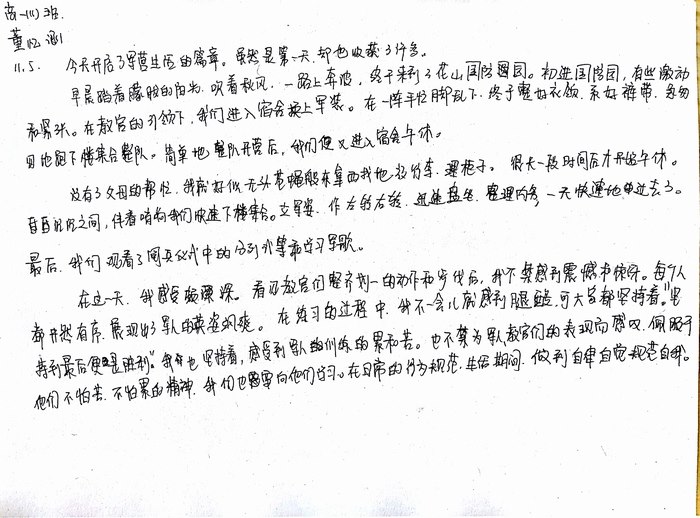 高一(11)班
董忆
11.5. 今天开启了军营生活的篇章。虽然是第一天,却也收获了许多。
早晨踏着朦胧的月光,吹着秋风,一路上奔波,终于来到了花山国防园。初进国防园,有些激动
和紧张。在教官的引领下,我们进入宿舍换上军装。在一阵手忙脚乱下,终于整好衣领,系好裤带,匆匆
忙地跑下楼集合整队。简单地整队开营后,我们便又进入宿舍午休。
没有了父母的帮忙,我就好似无头苍蝇般东拿西找地
铺床、理柜子。很长一段时间后才开始午休。
迷迷糊糊之间,伴着哨声我们快速下楼集合。立军姿,作左转右转,
整理内务,一天快速地过去了。
最后,我们观看了阅兵仪式中的分列式等和学习军歌。
在这一天,我感受极深。看见教官们整齐划一的动作和步伐后,我不禁感到震撼和惊讶。每个人
都井然有序,展现出了军人的英姿飒爽。在练习的过程中,我不一会儿就感到腿酸,可大家都坚持着。"坚
持到最后便是胜利"。我也坚持着,感受到军人训练的累和苦。也不禁为军人教官们的表现而感叹,佩服于
他们不怕苦、不怕累的精神,我们也要向他们学习。在日常的行为规范、生活期间,做到自律自觉规范自我。